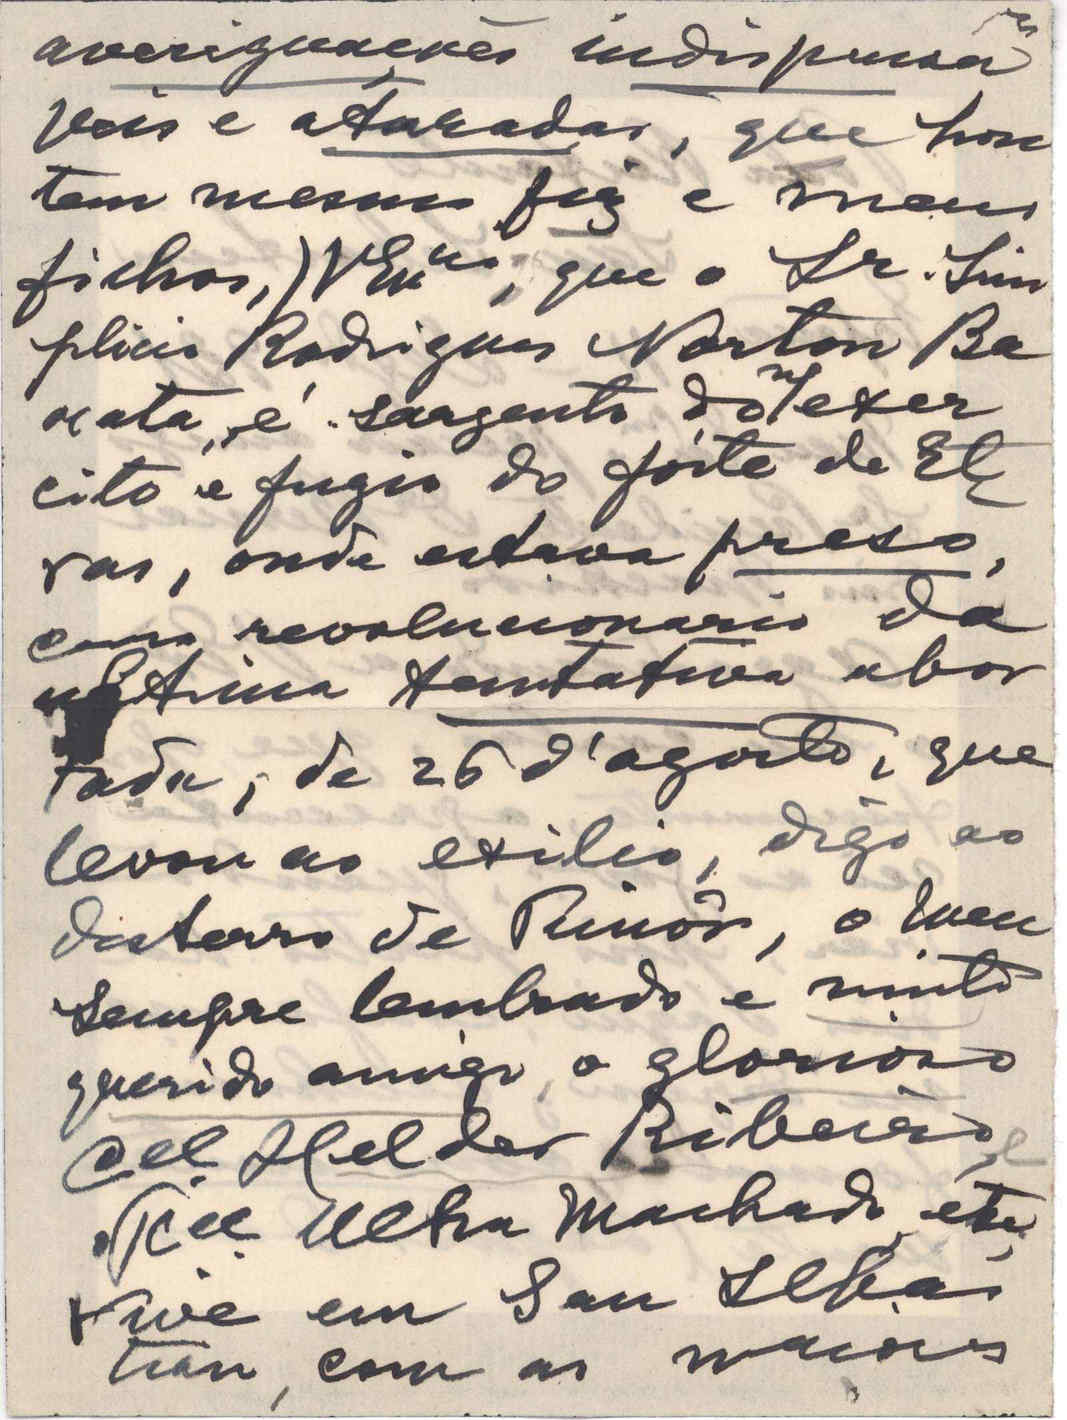 averiguações indispensa
veis e aturadas, que hon
tem mesmo fiz e meus
fichos,) V Exª, que o Sr. Sim
plicio Rodrigues Norton Ba
rata, é sargento do n/ exer
cito e fugio do forte de El
vas, onde estava preso,
como revolucionario da
ultima tentativa abor
tada, de 26 d'agosto, que
levou ao exilio, digo ao
desterro de Timôr, o meu
sempre lembrado e muito
querido amigo, o glorioso
Cel. Helder Ribeiro, e
Cel. Utra Machado, etc,
vive em San Sebas
tian, com as maiores